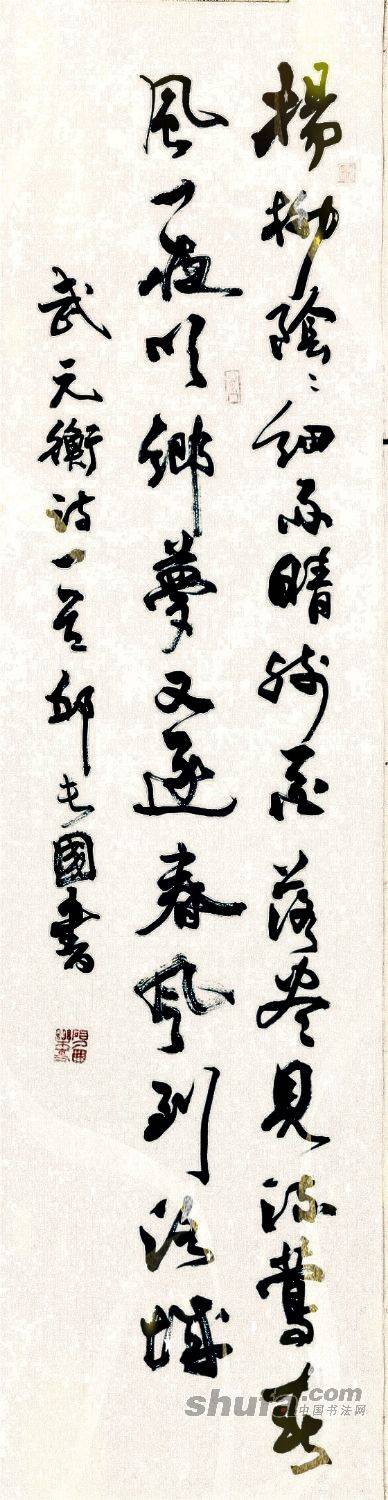 楊柳陰〻細雨晴殘花落尽見流鶯春
風一夜吹鄉夢又逐春風到洛城
武元衡诗一首邱國書
shufa.com
中国书法网